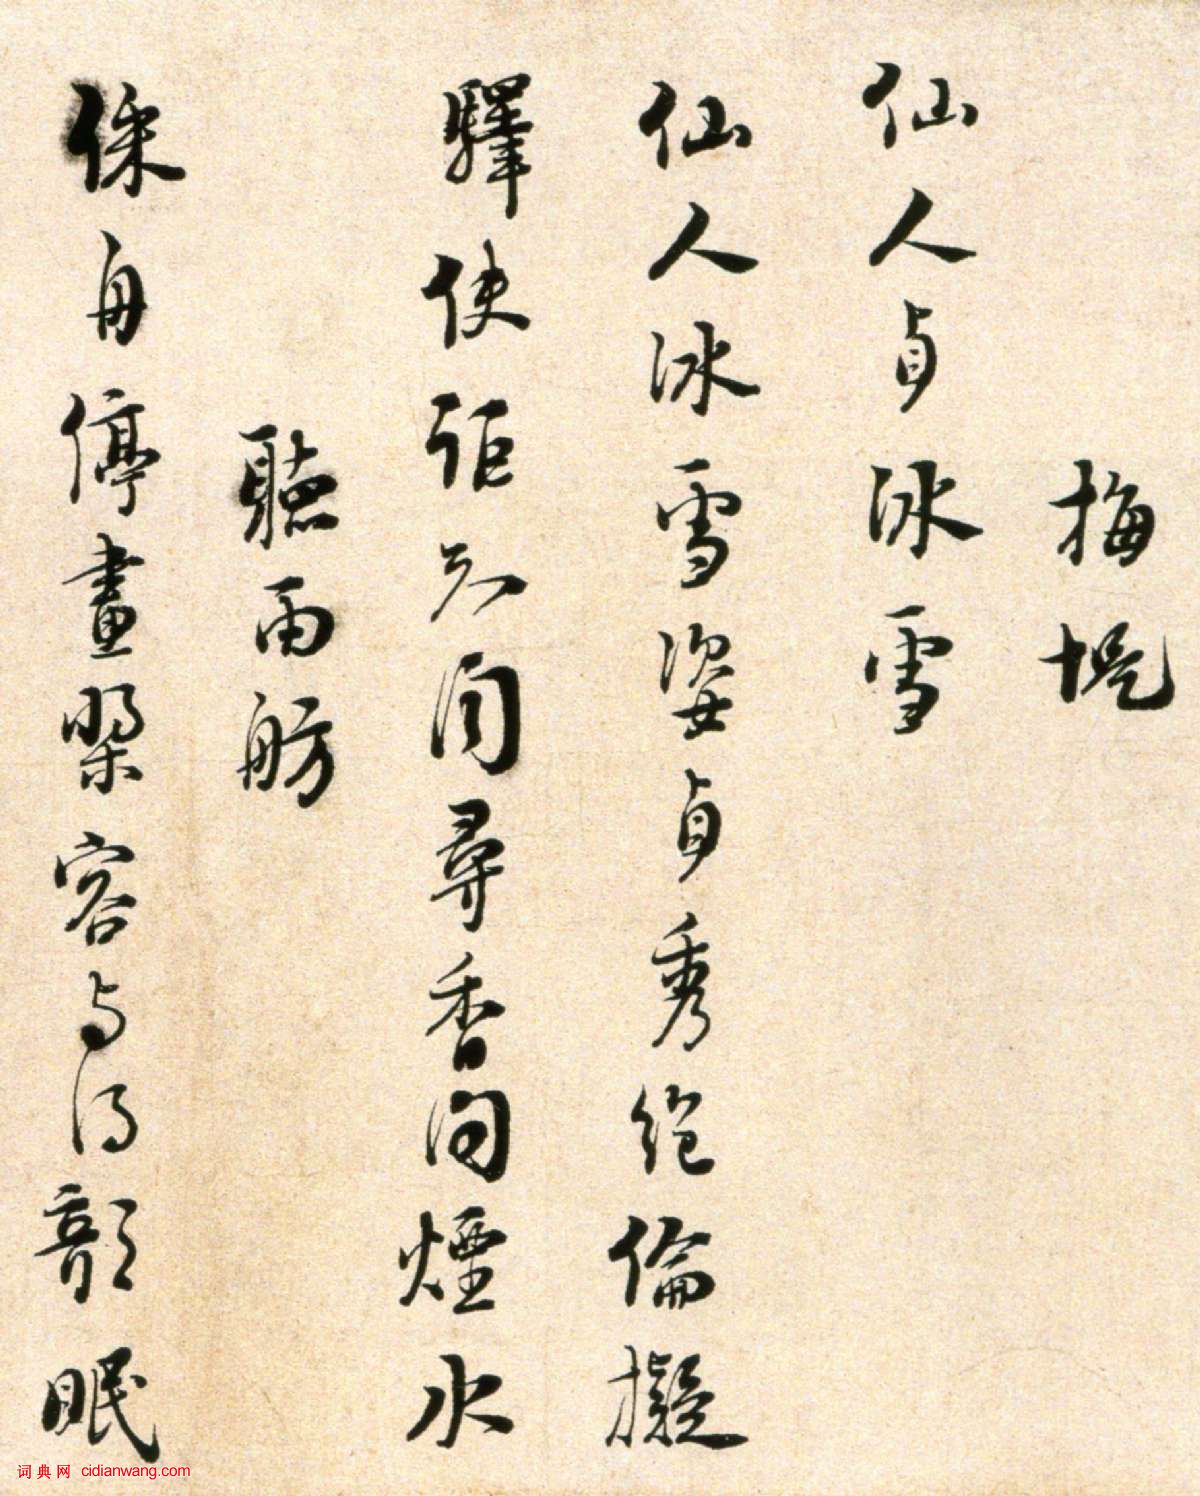 梅堤
仙人貞冰雪
仙人冰雪姿貞秀絕倫擬
驛使詎知聞尋香問煙水
聽雨舫
舟停畫槳容与得眠
词典网 cidianwang.com